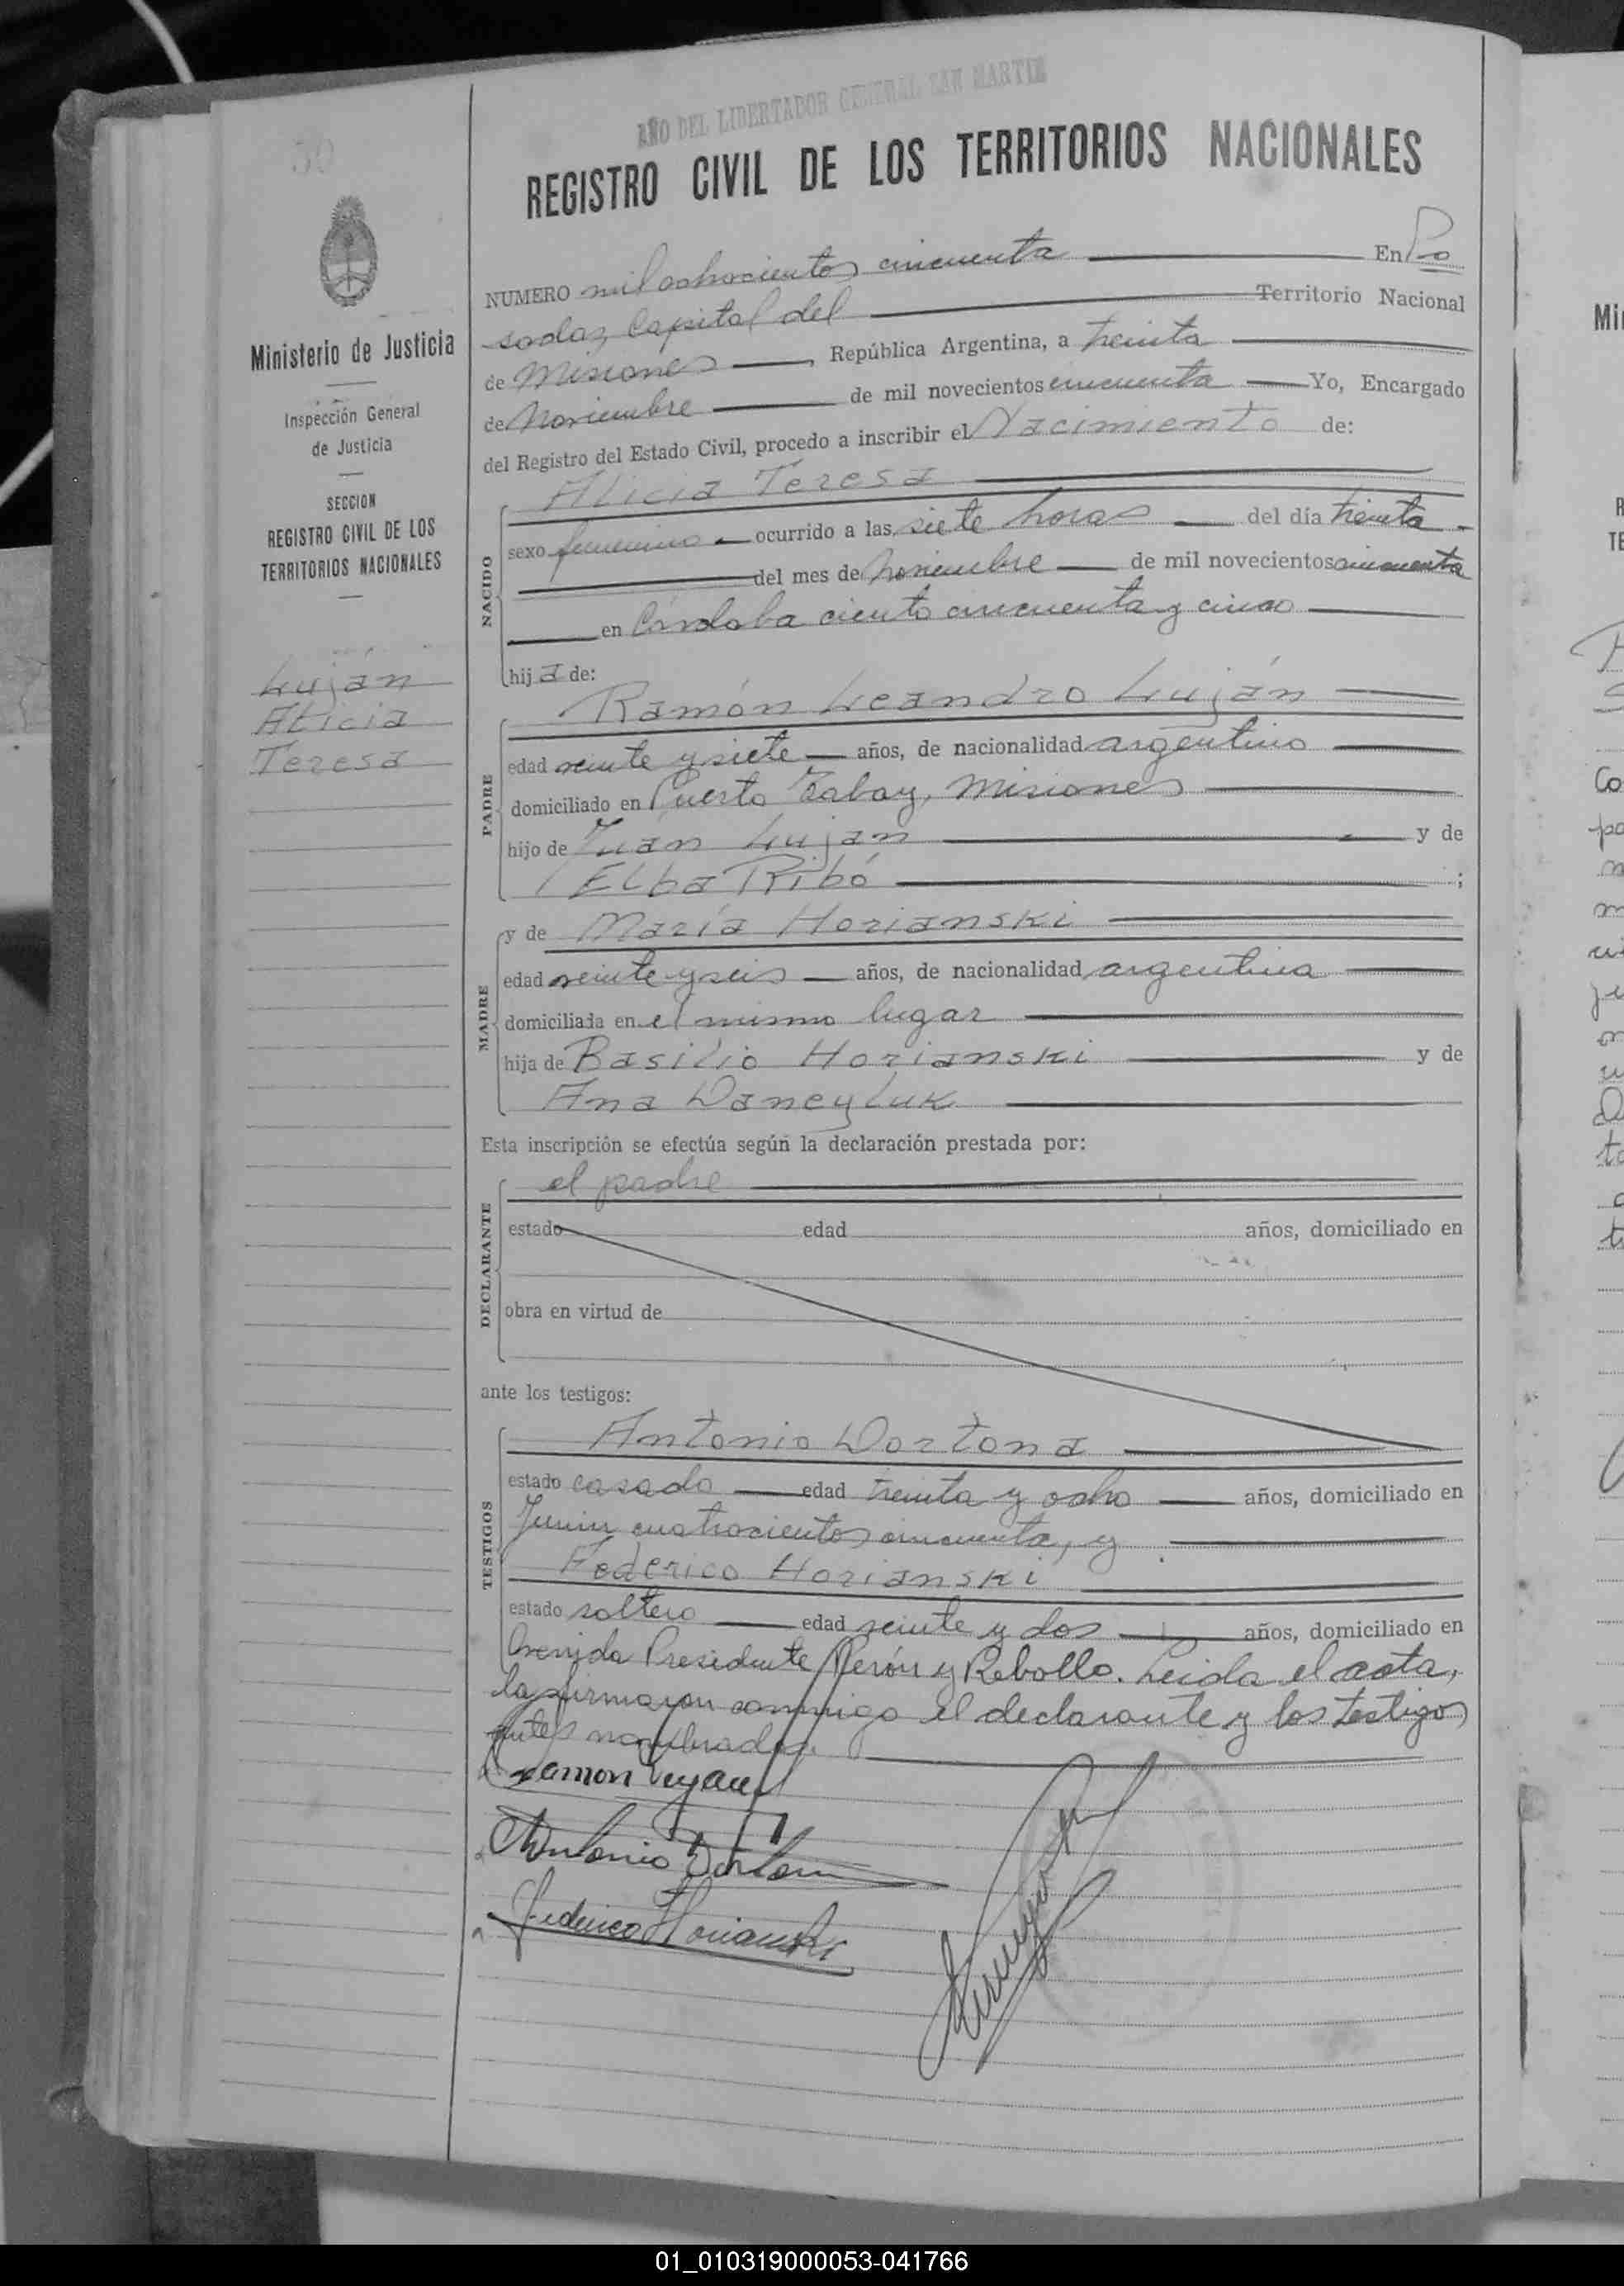 AÑO DEL LIBERTADOR GENERAL SAN MARTIN
REGISTRO CIVIL DE LOS TERRITORIOS NACIONALES
30
Ministerio de Justicia
Inspección General
de Justicia
SECCION
REGISTRO CIVIL DE LOS
TERRITORIOS NACIONALES
Luján
Alicia
Teresa
NUMERO mil ochocientos cincuenta En Po
sadas, Capital del Territorio Nacional
de Misiones, República Argentina, a treinta
de Noviembre de mil novecientos cincuenta Yo, Encargado
del Registro del Estado Civil, procedo a inscribir el Nacimiento de:
NACIDO
Alicia Teresa
sexo femenino ocurrido a las siete horas del día treinta
del mes de noviembre de mil novecientos cincuenta
en Córdoba ciento cincuenta y cinco
hija de:
PADRE
Ramón Leandro Luján
edad veinte y siete años, de nacionalidad argentino
domiciliado en Puerto Tabay, Misiones
hijo de Juan Luján y de
Elba Ribó ;
MADRE
y de María Horianski
edad veinte y seis años, de nacionalidad argentina
domiciliada en el mismo lugar
hija de Basilio Horianski y de
Ana Daneyluk
Esta inscripción se efectúa según la declaración prestada por:
DECLARANTE
el padre
estado edad años, domiciliado en
obra en virtud de
ante los testigos:
TESTIGOS
Antonio Dortona
estado casado edad treinta y ocho años, domiciliado en
Junin cuatrocientos cincuenta, y
Federico Horianski
estado soltero edad veinte y dos años, domiciliado en
Avenida Presidente Perón y Rebollo. Leida el acta,
la firmaron conmigo el declarante y los testigos
antes nombrados.
Ramon Lujan
Antonio Dortona
Federico Horianski
01_010319000053-041766